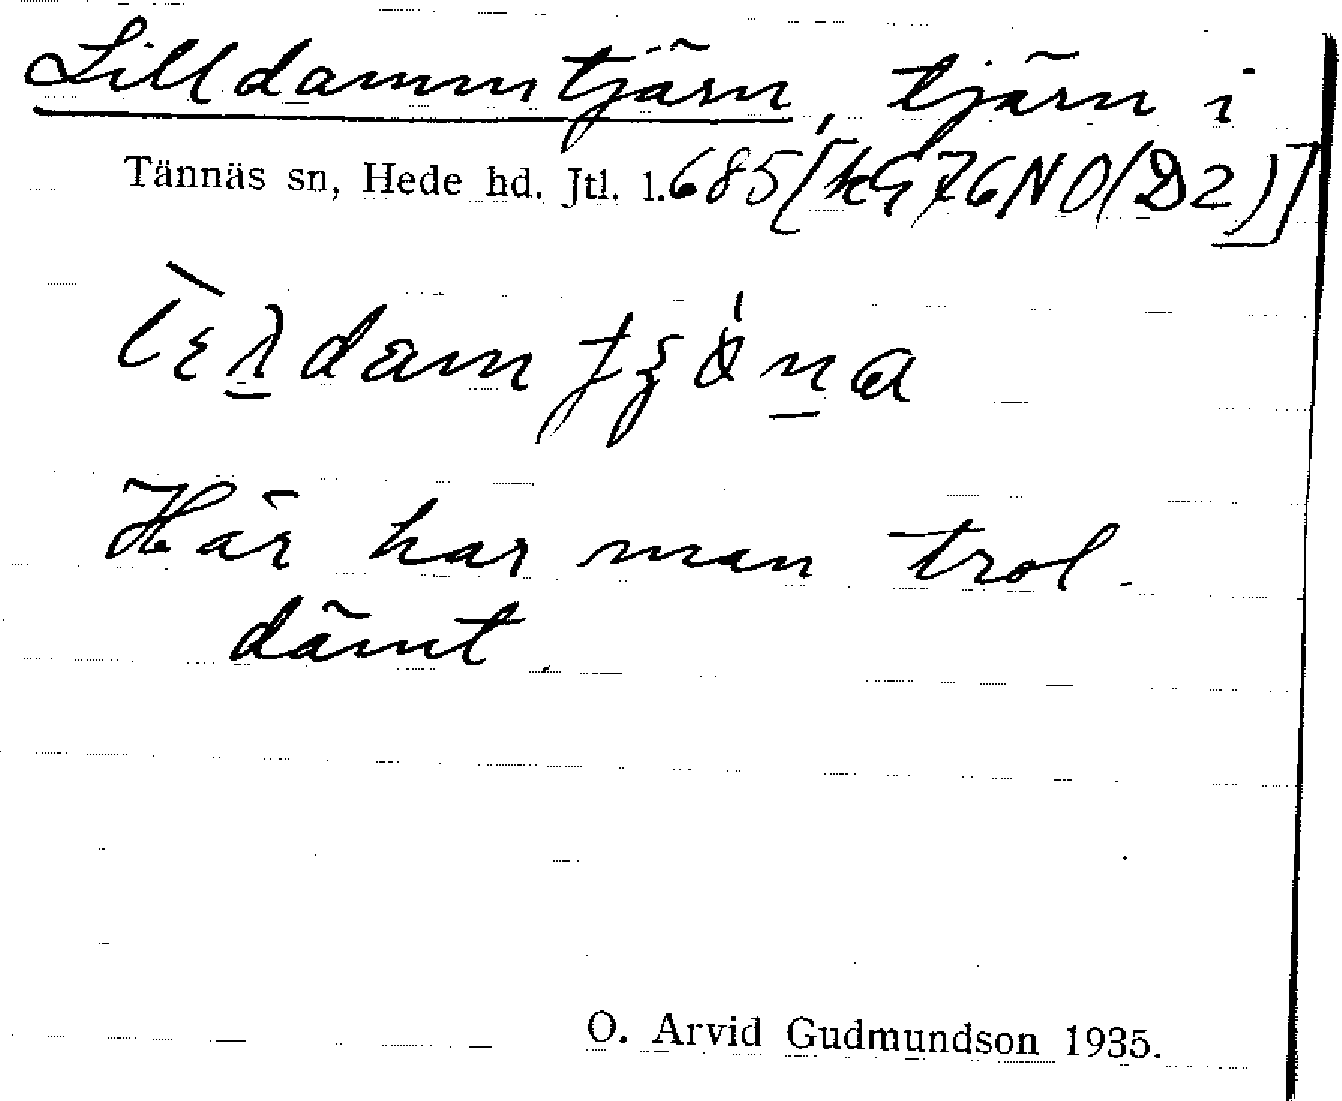 Lilldammtjärn, tjärn i
Tännäs sn, Hede hd. Jtl. l. 685 [kG76NO(D2)]
Här har man trol.
dämt.
O. Arvid Gudmundson 1935.